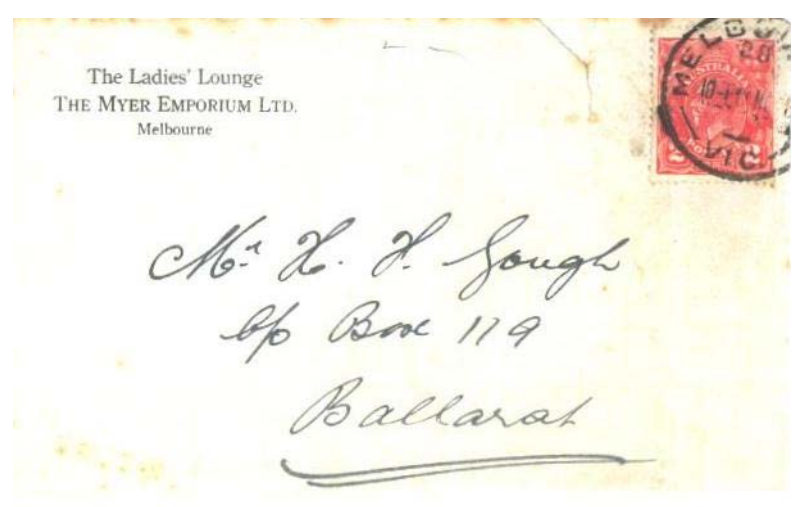 The Ladies' Lounge
THE MYER EMPORIUM LTD.
Melbourne
AUSTRALIA
2
VIC
Mr. H. H. Gough
c/o Box 119
Ballarat